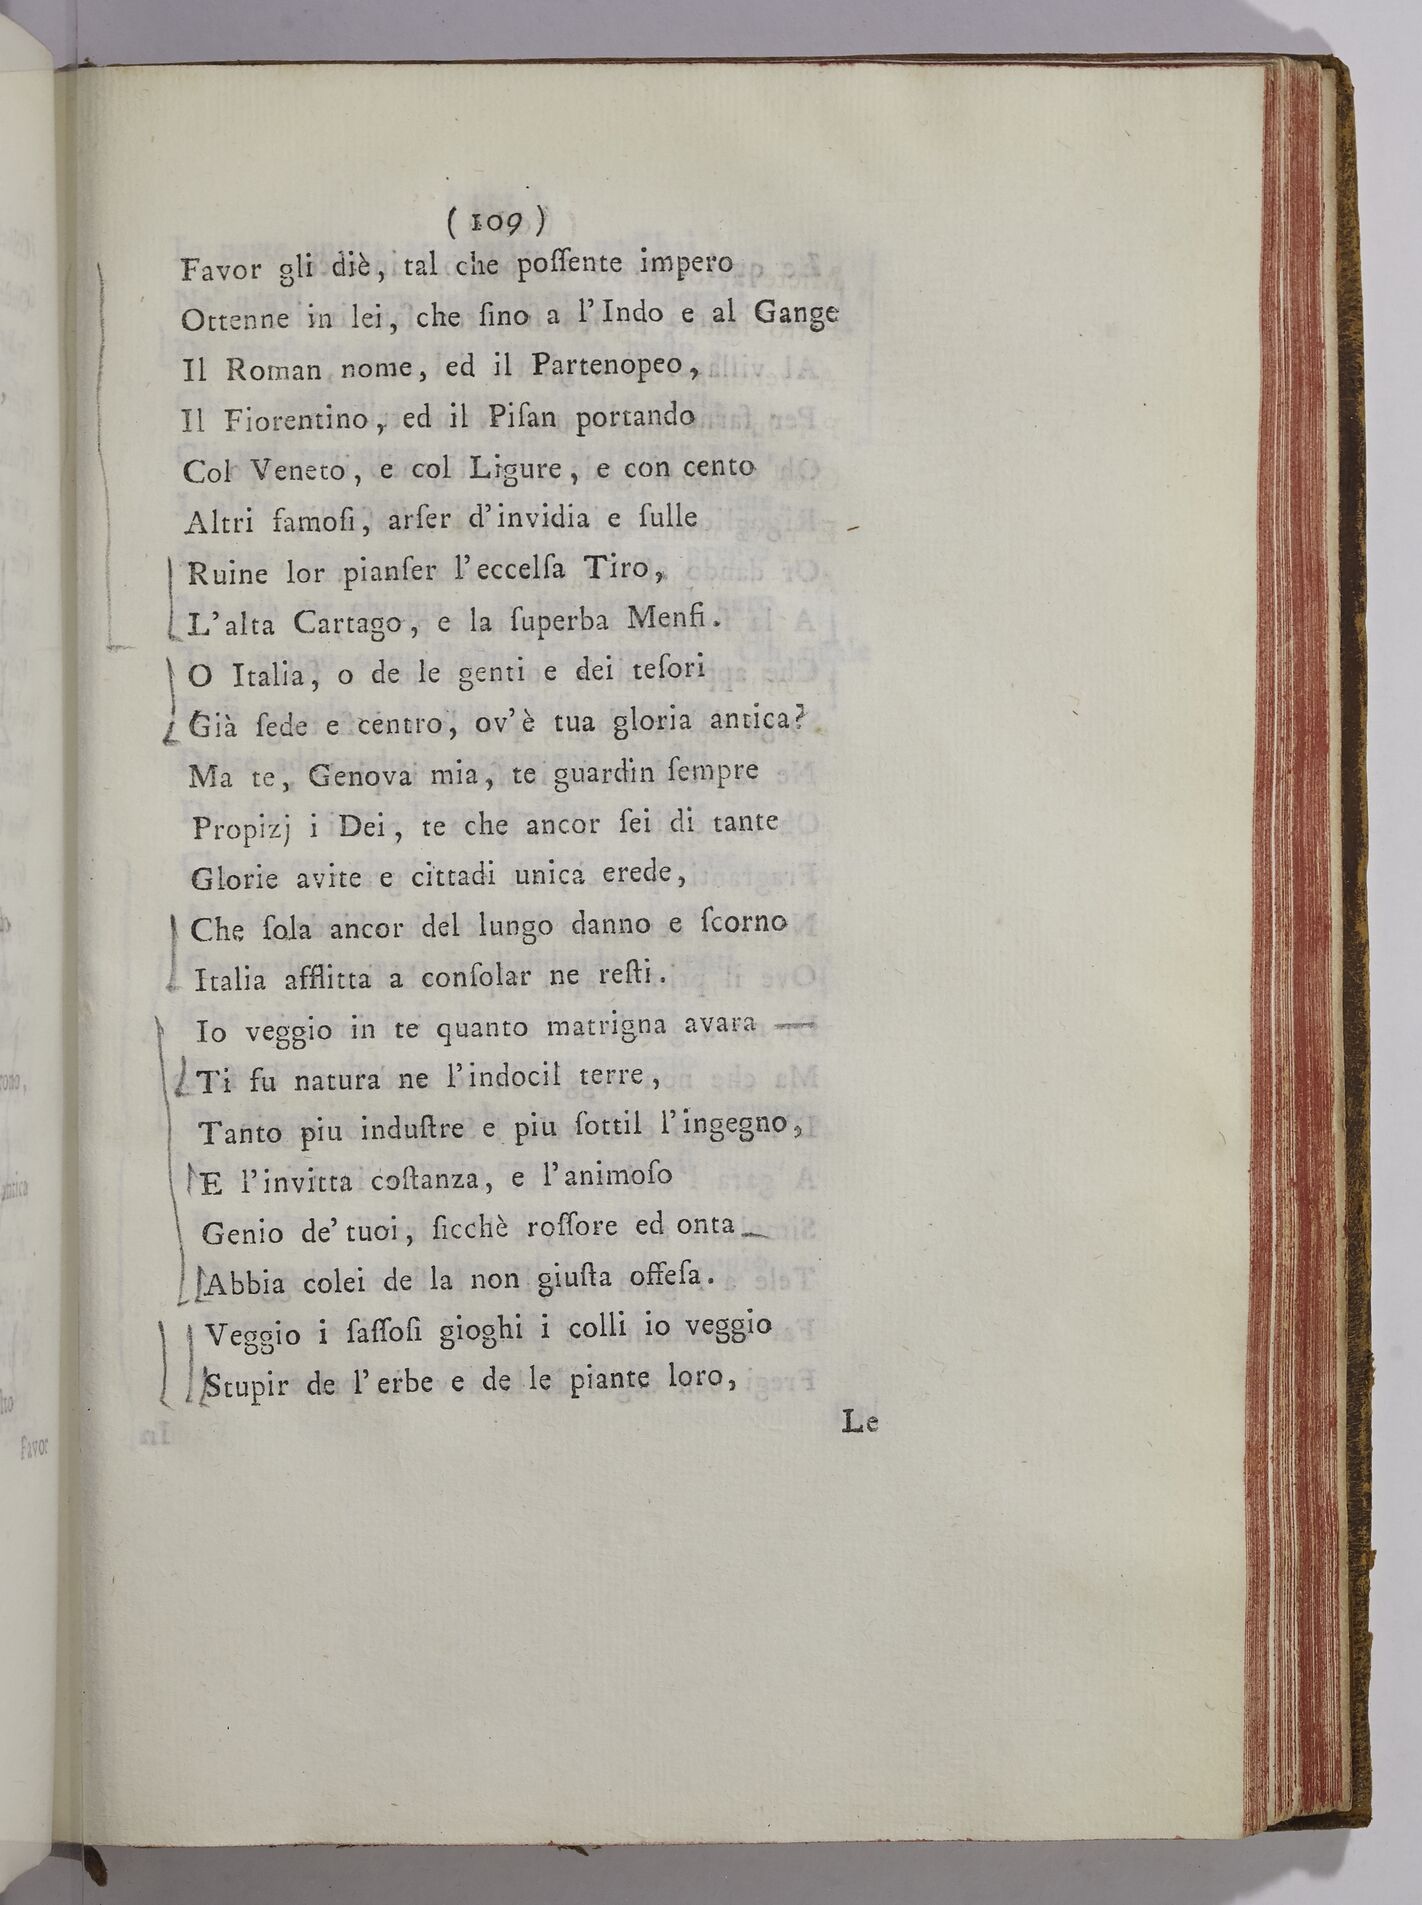 (109)
Favor gli diè, tal che poſſente impero
Ottenne in lei, che ſino a l'Indo e al Gange
Il Roman nome, ed il Partenopeo,
Il Fiorentino, ed il Piſan portando
Col Veneto, e col Ligure, e con cento
Altri famoſi, arſer d'invidia e ſulle
Ruine lor pianſer l'eccelſa Tiro,
L'alta Cartago, e la ſuperba Menfi.
O Italia, o de le genti e dei teſori
Già ſede e centro, ov'è tua gloria antica?
Ma te, Genova mia, te guardin ſempre
Propizj i Dei, te che ancor ſei di tante
Glorie avite e cittadi unica erede,
Che ſola ancor del lungo danno e ſcorno
Italia afflitta a conſolar ne reſti.
Io veggio in te quanto matrigna avara
Ti fu natura ne l'indocil terre,
Tanto piu induſtre e piu ſottil l'ingegno,
E l'invitta coſtanza, e l'animoſo
Genio de' tuoi, ſicchè roſſore ed onta
Abbia colei de la non giuſta offeſa.
Veggio i ſaſſoſi gioghi i colli io veggio
Stupir de l'erbe e de le piante loro,
Le
Favor